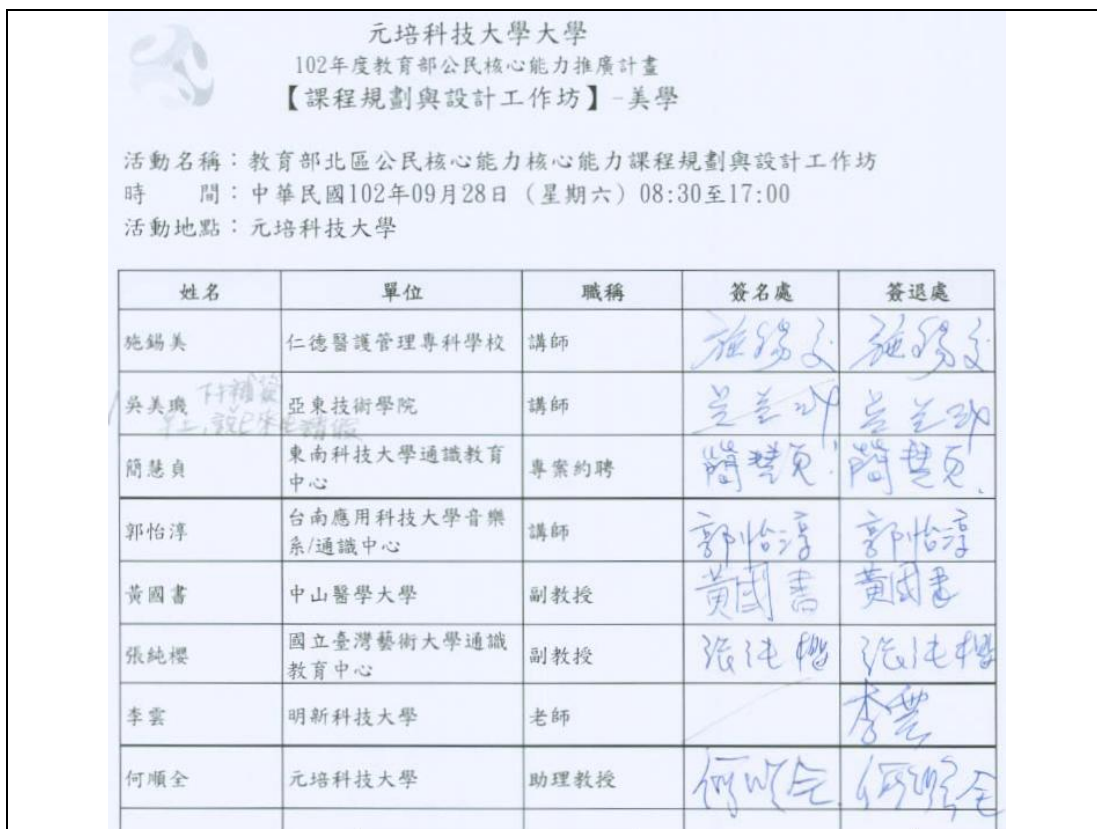 元培科技大學大學
102年度教育部公民核心能力推廣計畫
【課程規劃與設計工作坊】-美學
活動名稱：教育部北區公民核心能力核心能力課程規劃與設計工作坊
時　　間：中華民國102年09月28日（星期六）08:30至17:00
活動地點：元培科技大學
姓名 單位 職稱 簽名處 簽退處
施錫美 仁德醫護管理專科學校 講師 施錫美 施錫美
吳美璣 下午補簽 亞東技術學院 講師 吳美璣 吳美璣
請假
簡慧貞 東南科技大學通識教育 專案約聘 簡慧貞 簡慧貞
中心
郭怡淳 台南應用科技大學音樂 講師 郭怡淳 郭怡淳
系/通識中心
黃國書 中山醫學大學 副教授 黃國書 黃國書
張純櫻 國立臺灣藝術大學通識 副教授 張純櫻 張純櫻
教育中心
李雲 明新科技大學 老師 李雲
何順全 元培科技大學 助理教授 何順全 何順全